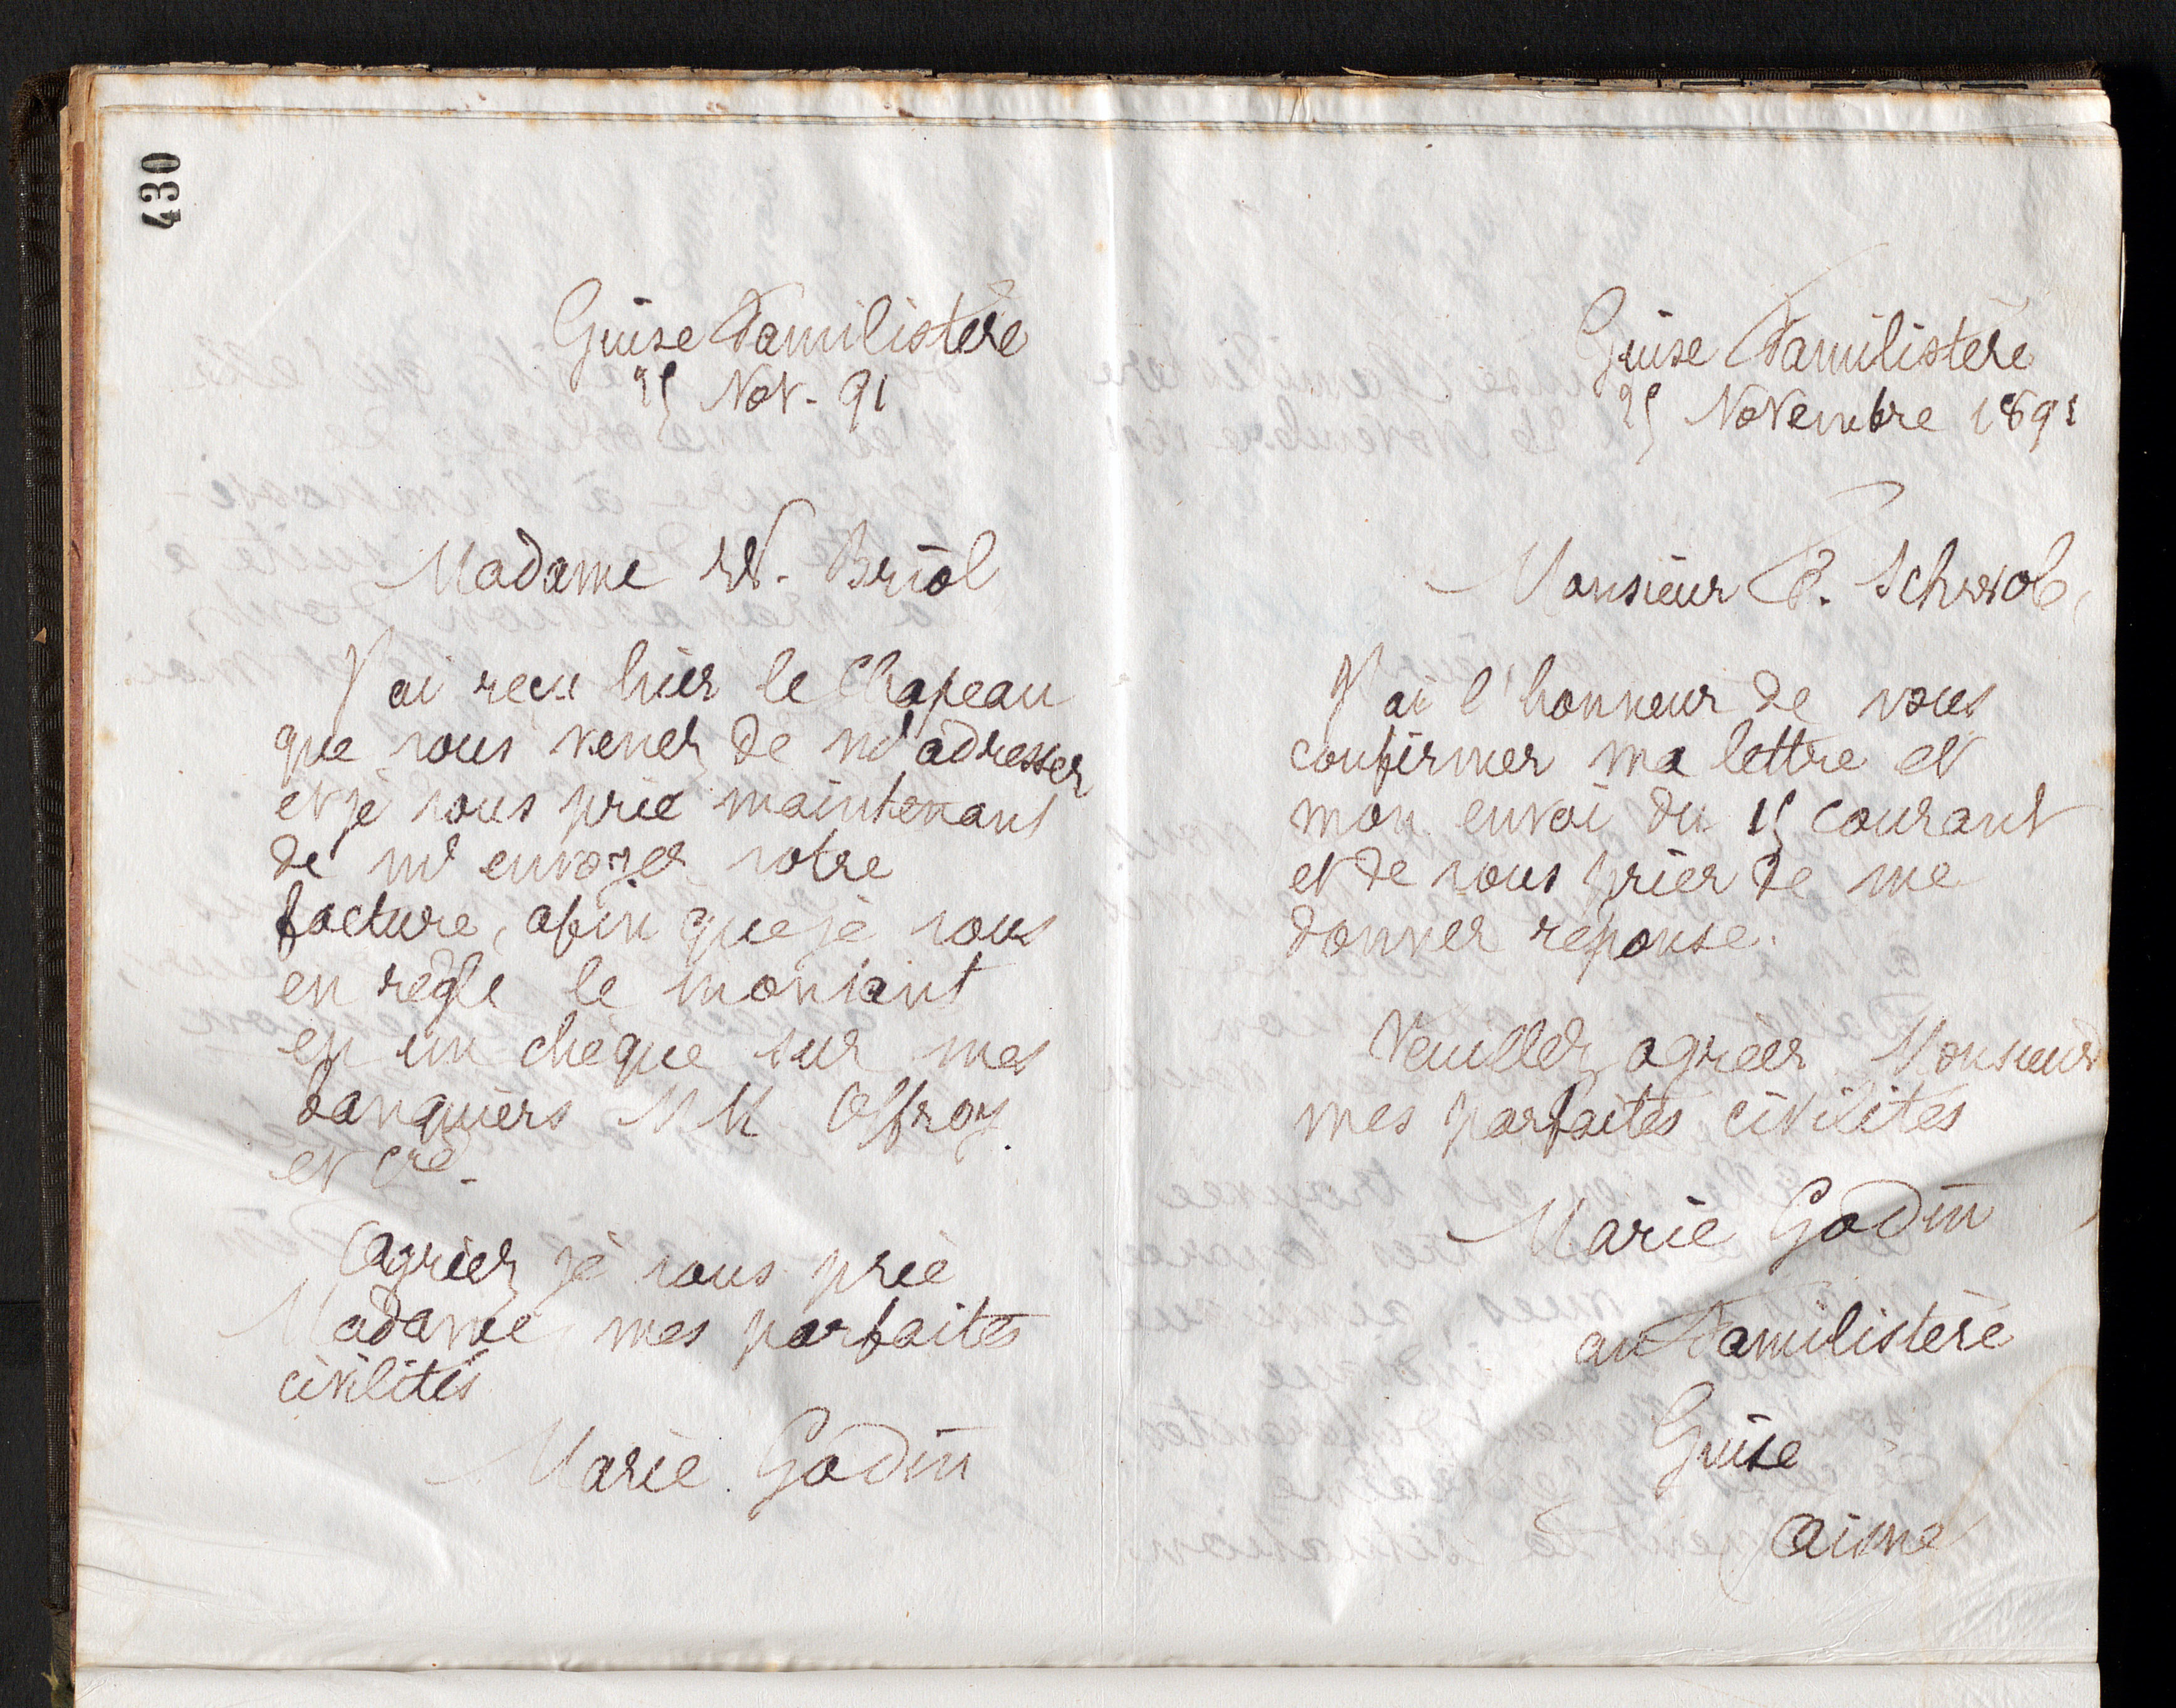 430
Guise Familistère
25 Nov. 91
Madame W. Briol
J'ai reçu hier le Chapeau
que vous venez de m'adresser
et je vous prie maintenant
de m'envoyer votre
facture, afin que je vous
en règle le montant
en un chèque sur mes
banquiers MM Offroy
et Cie.
Agréez je vous prie
Madame mes parfaites
civilités
Marie Godin
Guise Familistère
25 Novembre 1891
Monsieur E. Schwob,
J'ai l'honneur de vous
confirmer ma lettre et
mon envoi du 15 courant
et de vous prier de me
donner réponse.
Veuillez agréer Monsieur
mes parfaites civilités
Marie Godin
au Familistère
Guise
Aisne